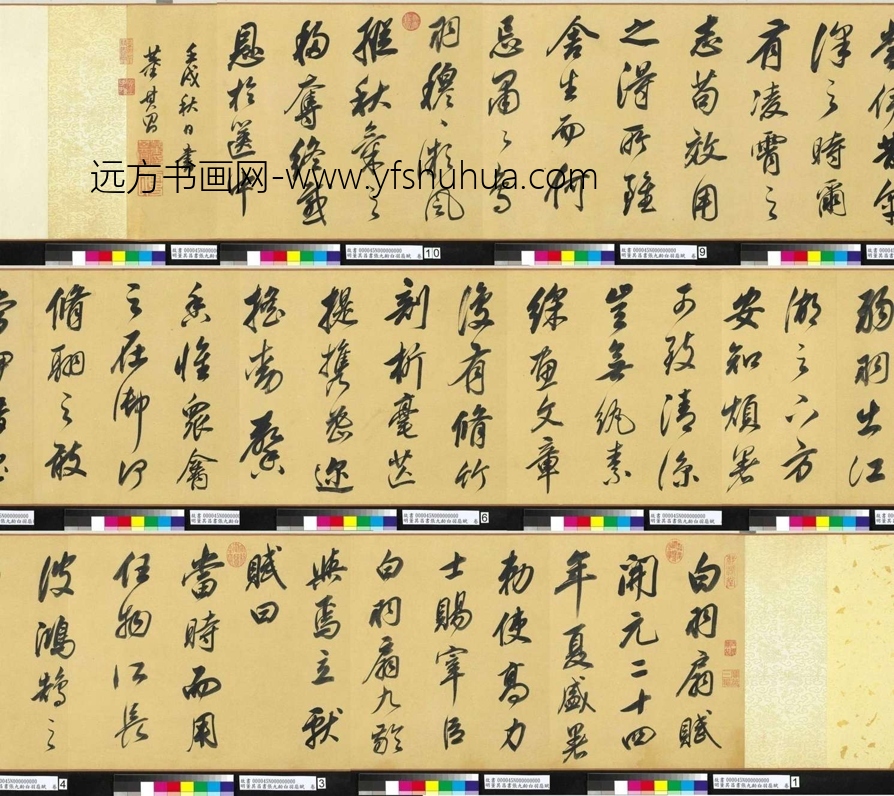 白羽扇賦
開元二十四
年夏盛暑
勅使高力
士賜宰臣
白羽扇九齡
與焉立獻
賦曰
當時而用
任物所長
彼鴻鵠之
弱羽出江
湖之下方
安知煩暑
可致清涼
豈無紈素
綵畫文章
復有脩竹
剖析毫芒
提攜密邇
搖動馨
香惟眾禽
之在御何
脩翮之敢
當伊昔皋
澤之時爾
有凌霄之
志苟效用
之得所雖
舍生而何
忌肅〻
羽穆〻風
縱秋氣之
移奪終感
恩於篋中
壬戌秋日書
董其昌
远方书画网-www.yfshuhua.com
故畫 000045N000000000
明董其昌書張九齡白羽扇賦 卷
1
3
4
6
9
10